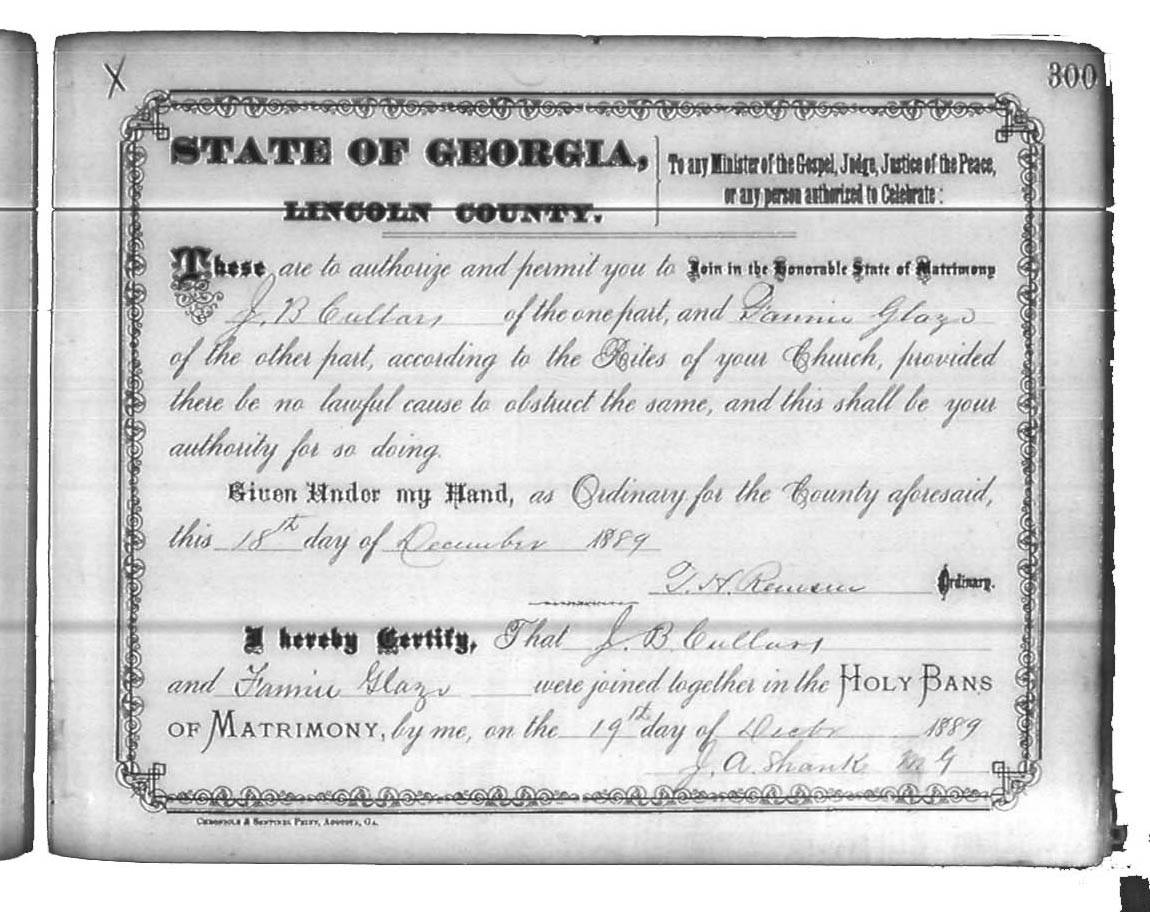 X
300
STATE OF GEORGIA,
LINCOLN COUNTY.
To any Minister of the Gospel, Judge, Justice of the Peace,
or any person authorized to Celebrate:
These are to authorize and permit you to Join in the Honorable State of Matrimony
J. B Cullars of the one part, and Fannie Glaze
of the other part, according to the Rites of your Church, provided
there be no lawful cause to obstruct the same, and this shall be your
authority for so doing.
Given Under my Hand, as Ordinary for the County aforesaid,
this 18th day of December 1889
T. H. Remsen Ordinary.
I hereby Certify, That J. B. Cullars
and Fannie Glaze were joined together in the HOLY BANS
OF MATRIMONY, by me, on the 19th day of Decbr 1889
J. A. Shank M G
CHRONICLE & SENTINEL PRINT, AUGUSTA, GA.